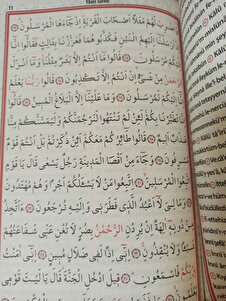 11
Yâsîn Sûresi
وَاضْرِبْ لَهُمْ مَثَلًا اَصْحَابَ الْقَرْيَةِ اِذْ جَٓاءَهَا الْمُرْسَلُونَ
اِذْ اَرْسَلْنَٓا اِلَيْهِمُ اثْنَيْنِ فَكَذَّبُوهُمَا فَعَزَّزْنَا بِثَالِثٍ فَقَالُٓوا اِنَّٓا
اِلَيْكُمْ مُرْسَلُونَ قَالُوا مَٓا اَنْتُمْ اِلَّا بَشَرٌ مِثْلُنَا وَمَٓا اَنْزَلَ
الرَّحْمٰنُ مِنْ شَيْءٍ اِنْ اَنْتُمْ اِلَّا تَكْذِبُونَ قَالُوا رَبُّنَا يَعْلَمُ
اِنَّٓا اِلَيْكُمْ لَمُرْسَلُونَ وَمَا عَلَيْنَٓا اِلَّا الْبَلَاغُ الْمُبِينُ
قَالُٓوا اِنَّا تَطَيَّرْنَا بِكُمْ لَئِنْ لَمْ تَنْتَهُوا لَنَرْجُمَنَّكُمْ وَلَيَمَسَّنَّكُمْ مِنَّا
عَذَابٌ اَلِيمٌ قَالُوا طَٓائِرُكُمْ مَعَكُمْ اَئِنْ ذُكِّرْتُمْ بَلْ اَنْتُمْ قَوْمٌ
مُسْرِفُونَ وَجَٓاءَ مِنْ اَقْصَا الْمَدِينَةِ رَجُلٌ يَسْعٰى قَالَ يَا قَوْمِ
اتَّبِعُوا الْمُرْسَلِينَ اِتَّبِعُوا مَنْ لَا يَسْـَٔلُكُمْ اَجْرًا وَهُمْ مُهْتَدُونَ
وَمَا لِيَ لَٓا اَعْبُدُ الَّذِي فَطَرَنِي وَاِلَيْهِ تُرْجَعُونَ ءَاَتَّخِذُ
مِنْ دُونِهِٓ اٰلِهَةً اِنْ يُرِدْنِ الرَّحْمٰنُ بِضُرٍّ لَا تُغْنِ عَنِّي شَفَاعَتُهُمْ
شَيْـًٔا وَلَا يُنْقِذُونِ اِنِّٓي اِذًا لَفِي ضَلَالٍ مُبِينٍ اِنِّٓي اٰمَنْتُ
بِرَبِّكُمْ فَاسْمَعُونِ قِيلَ ادْخُلِ الْجَنَّةَ قَالَ يَا لَيْتَ قَوْمِي